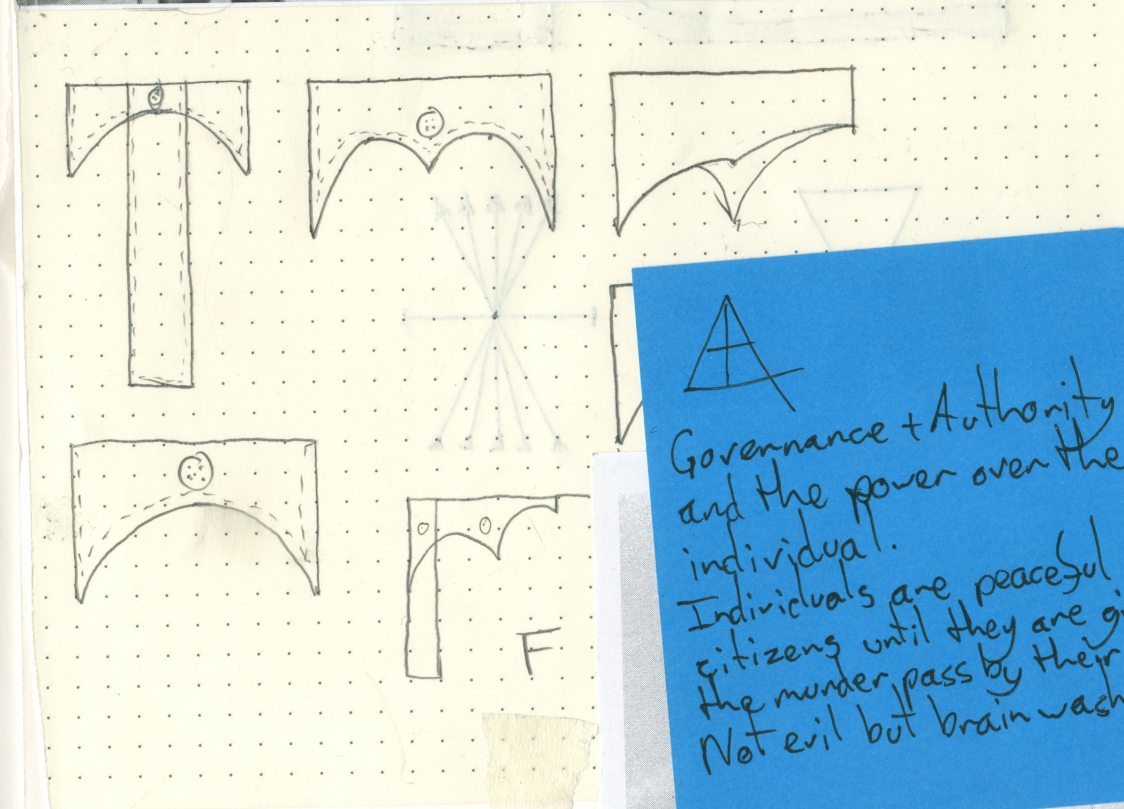 F
Governance + Authority
and the power over the
individual.
Individuals are peaceful
citizens until they are
the murder pass by their
Not evil but brain